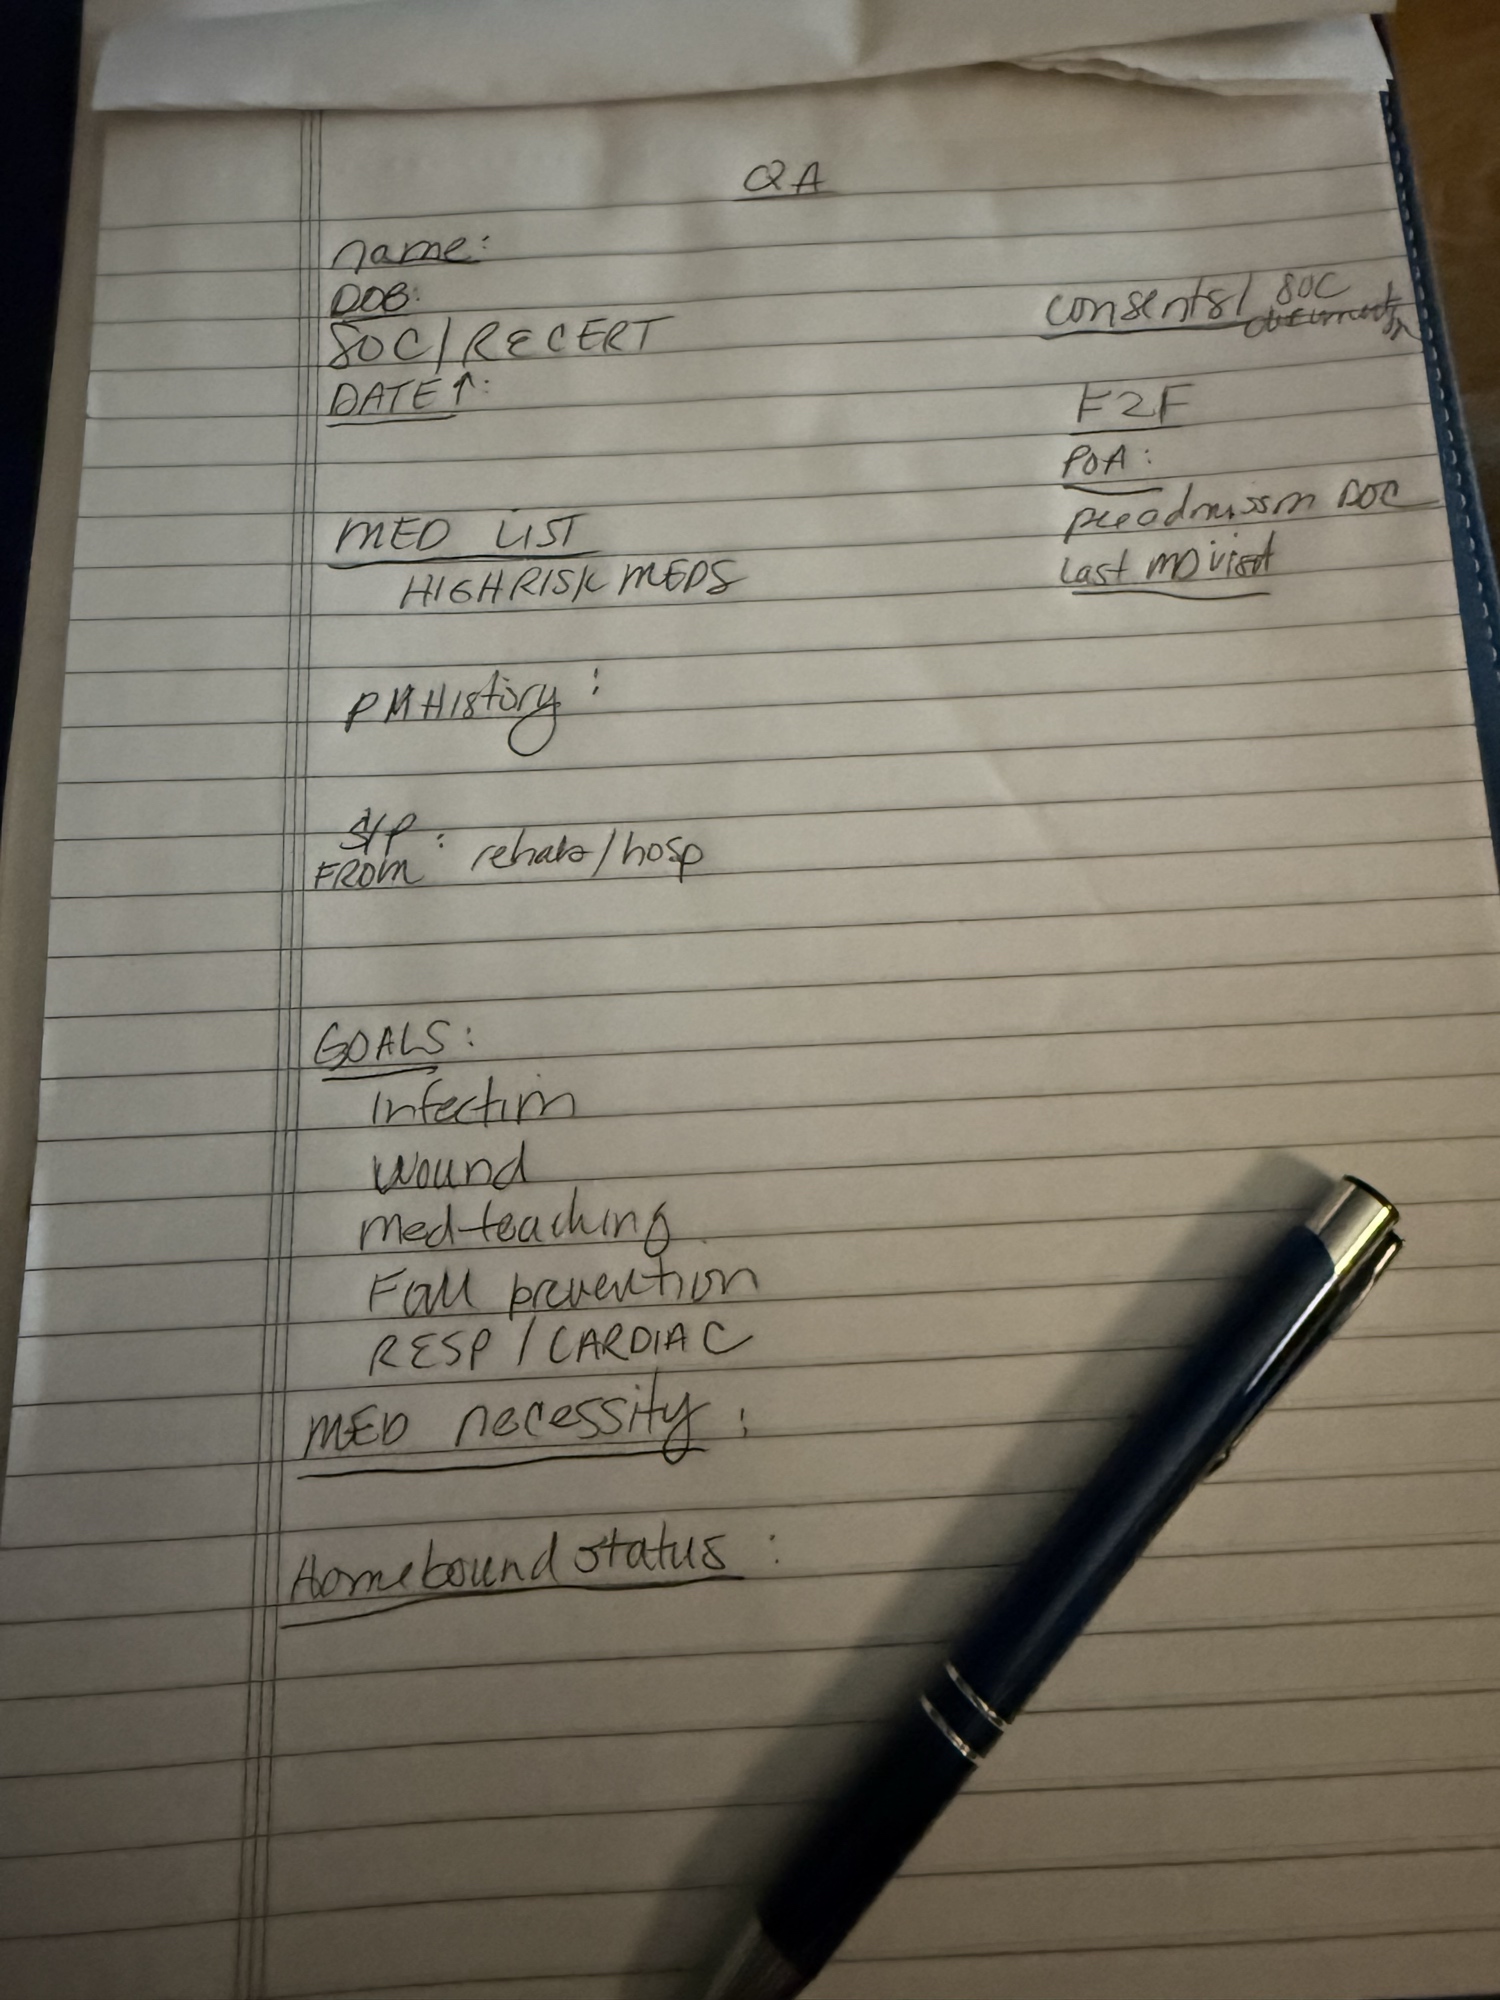 QA
name:
DOB:
SOC/RECERT
DATE↑:
consents/ SOC
F2F
POA:
preadmission DOC
Last MD visit
MED LIST
HIGH RISK MEDS
PMHistory:
S/P
FROM: rehab/hosp
GOALS:
Infection
Wound
Med teaching
Fall prevention
RESP/CARDIAC
MED necessity:
Homebound status: